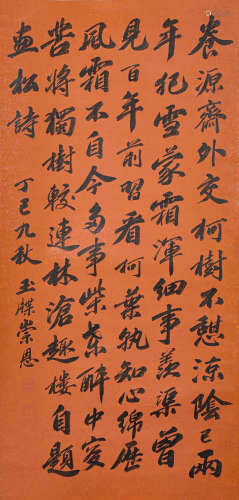 養源齋外交柯樹不憩涼陰已兩
年犯雪蒙霜渾細事羨渠曾
見百年前習看柯葉孰知心綿歷
風霜不自今多事柴桑醉中叟
苦將獨樹較連林滄趣樓自題
畫松詩
丁巳九秋玉牒崇恩